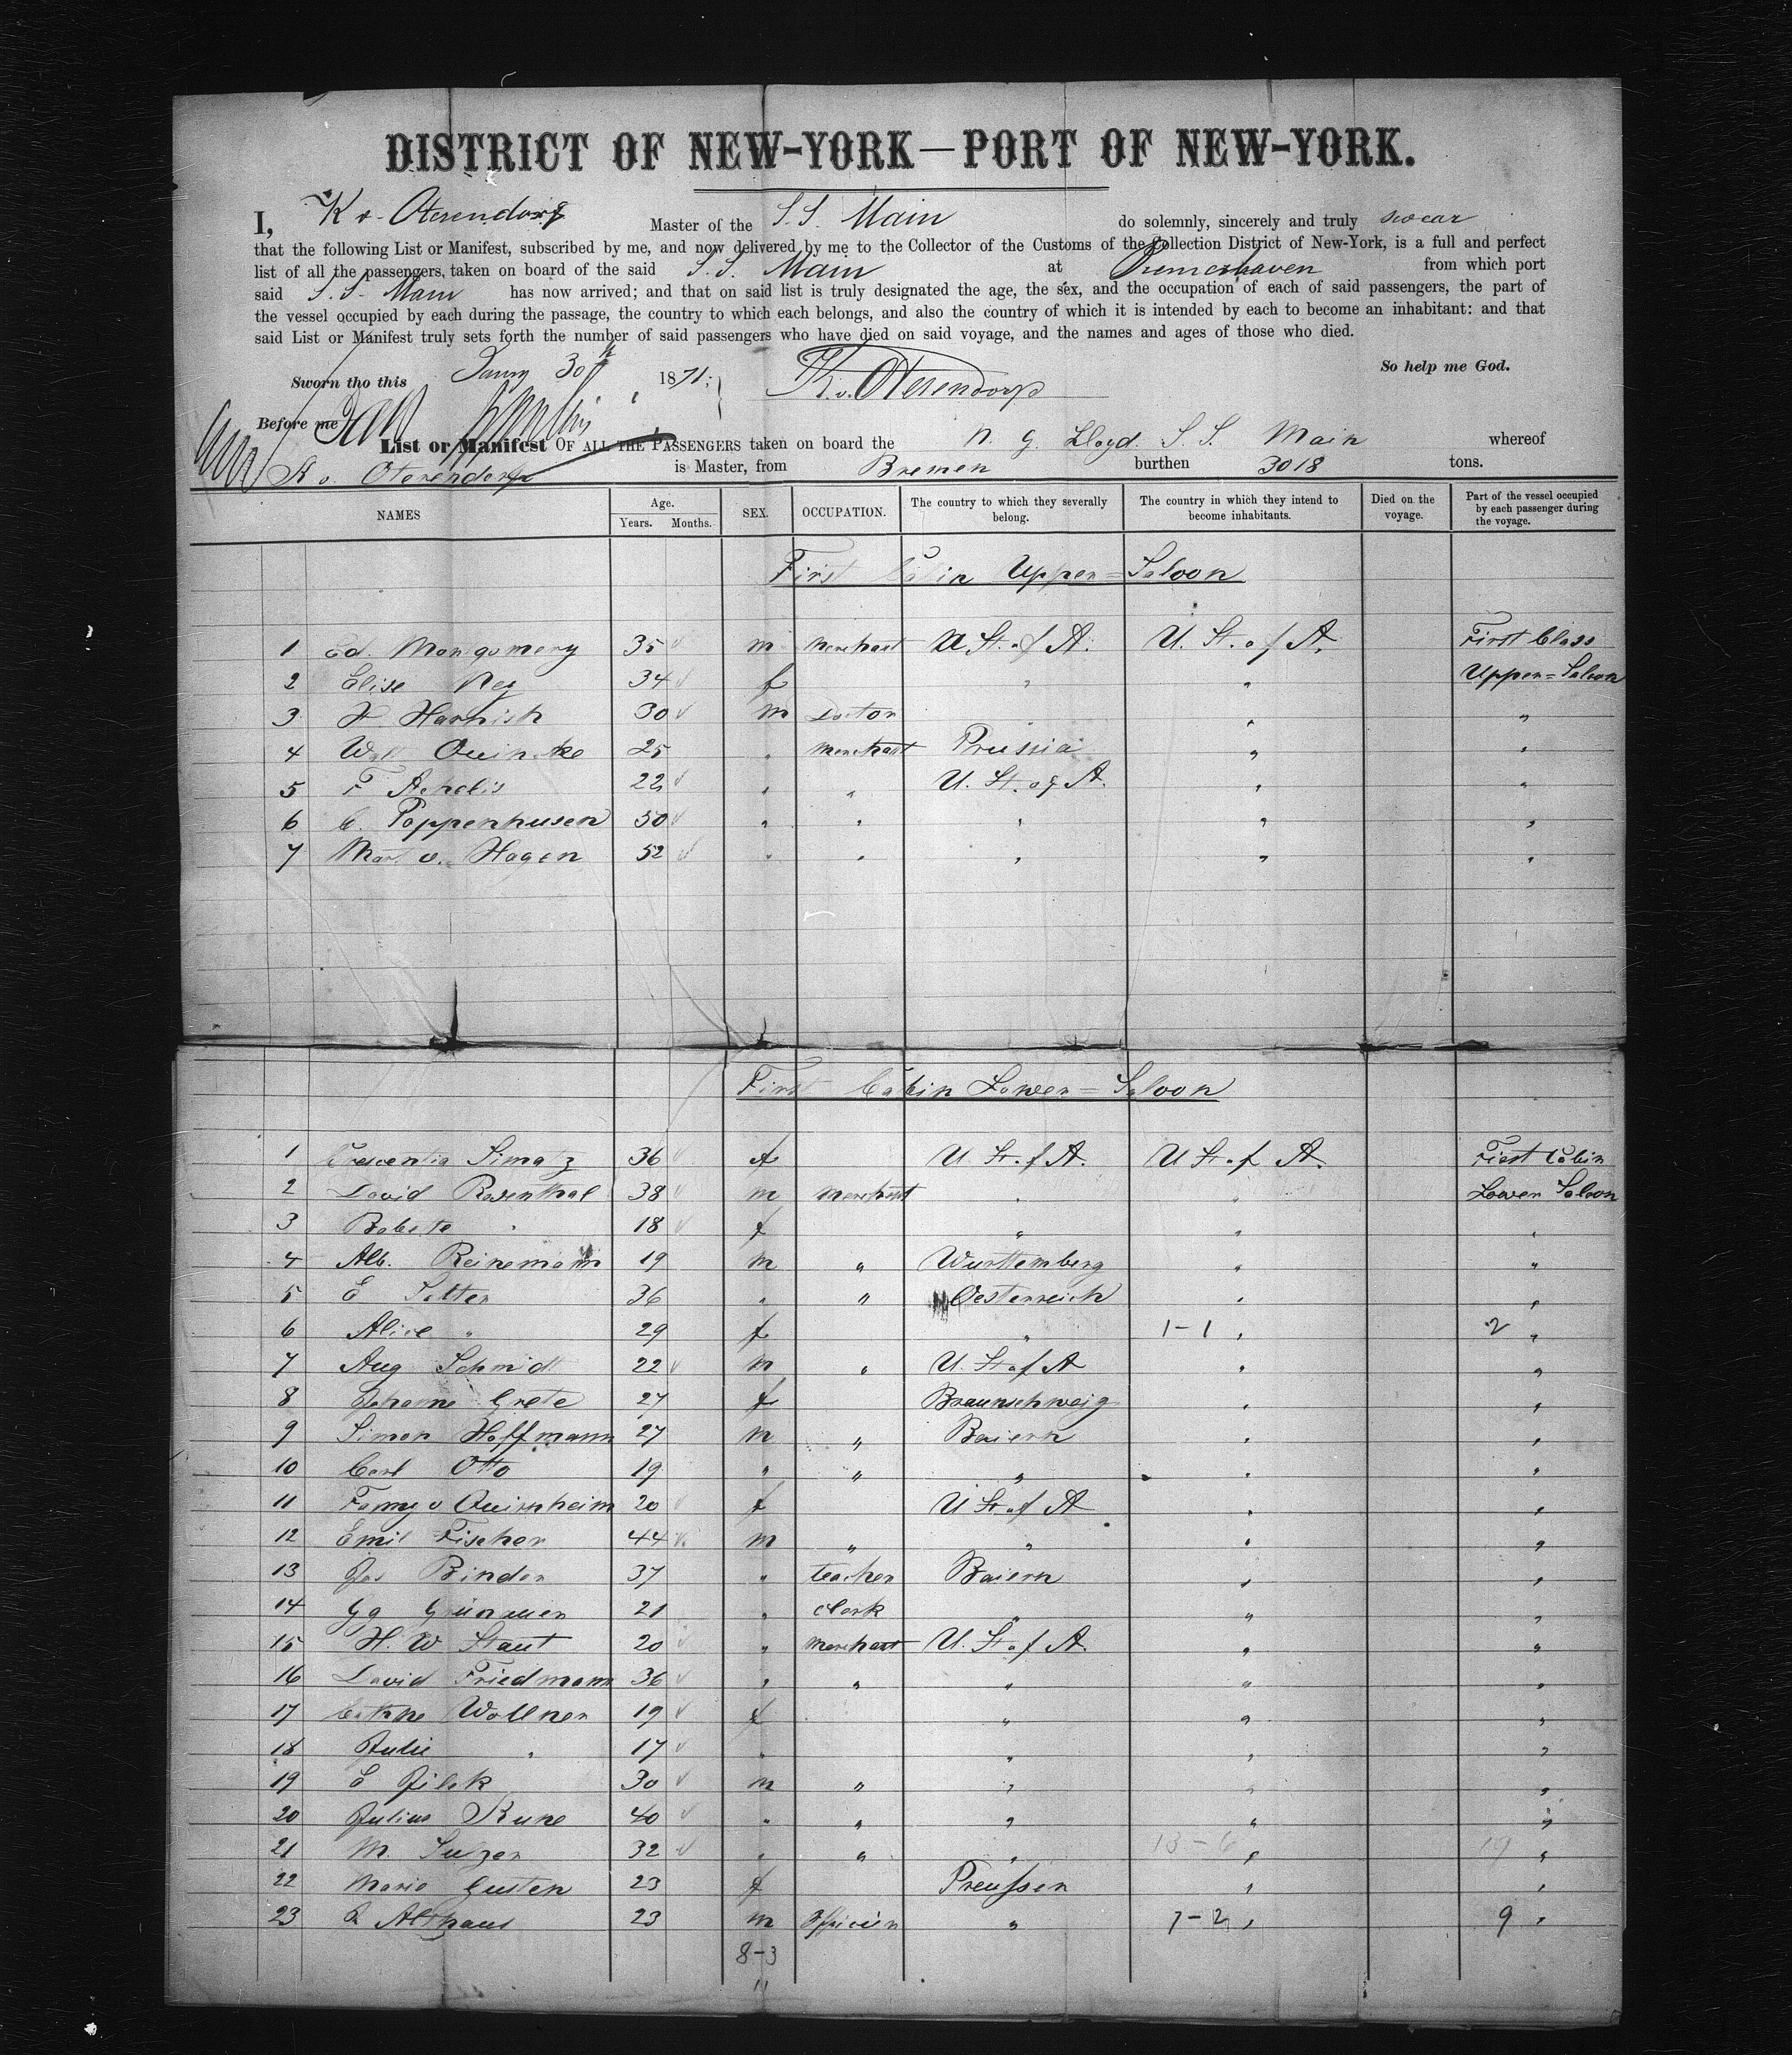 DISTRICT OF NEW-YORK—PORT OF NEW-YORK.
I, K v. Oterendorp Master of the S.S. Main do solemnly, sincerely and truly swear
that the following List or Manifest, subscribed by me, and now delivered by me to the Collector of the Customs of the Collection District of New-York, is a full and perfect
list of all the passengers, taken on board of the said S.S. Main at Bremerhaven from which port
said S.S. Main has now arrived; and that on said list is truly designated the age, the sex, and the occupation of each of said passengers, the part of
the vessel occupied by each during the passage, the country to which each belongs, and also the country of which it is intended by each to become an inhabitant: and that
said List or Manifest truly sets forth the number of said passengers who have died on said voyage, and the names and ages of those who died.
So help me God.
Sworn tho this 30th 1871; K. v. Oterendorp
Before me
List or Manifest OF ALL THE PASSENGERS taken on board the N. G. Lloyd S. S. Main whereof
K v. Oterendorp is Master, from Bremen burthen 3018 tons.
NAMES Age. Years. Months. SEX. OCCUPATION. The country to which they severally belong. The country in which they intend to become inhabitants. Died on the voyage. Part of the vessel occupied by each passenger during the voyage.
First Cabin Upper=Saloon
1 Ed. Montgomery 35 m Merchant U. St. of A. U. St. of A. First Class
2 Elise 34 f " " Upper=Saloon
3 Harnish 30 m Doctor " " "
4 Quincke 25 " Merchant Prussia " "
5 F Achelis 22 " " U. St. of A. " "
6 C. Poppenhusen 50 " " " " "
7 v. Hagen 52 " " " " "
First Cabin Lower=Saloon
1 Crescentia Simatz 36 f U St. of A. U St. of A. First Cabin
2 David Rosenthal 38 m Merchant " " Lower Saloon
3 Babette " 18 f " " "
4 Alb. Reinemann 19 m " Württemberg " "
5 E 36 " " Oesterreich " "
6 Alice " 29 f " 1-1 " 2 "
7 Aug Schmidt 22 m " U. St. of A " "
8 Johanne Grete 27 f Braunschweig " "
9 Simon Hoffmann 27 m " Baiern " "
10 Carl Otto 19 " " " " "
11 Fanny v Quirnheim 20 f U St. of A " "
12 Emil Fischer 44 m " " " "
13 Binder 37 " teacher Baiern " "
14 Gg 21 " clerk " " "
15 H. W. Staut 20 " Merchant U. St. of A. " "
16 David Friedmann 36 " " " " "
17 Wollner 19 f " " "
18 Julie " 17 " " " "
19 E 30 m " " " "
20 Julius 40 " " " " "
21 M. Sulzer 32 " " " 13-6 " 19 "
22 Marie Gusten 23 f Preussen " "
23 Althaus 23 m Officier " 7-2 " 9 "
8-3
11